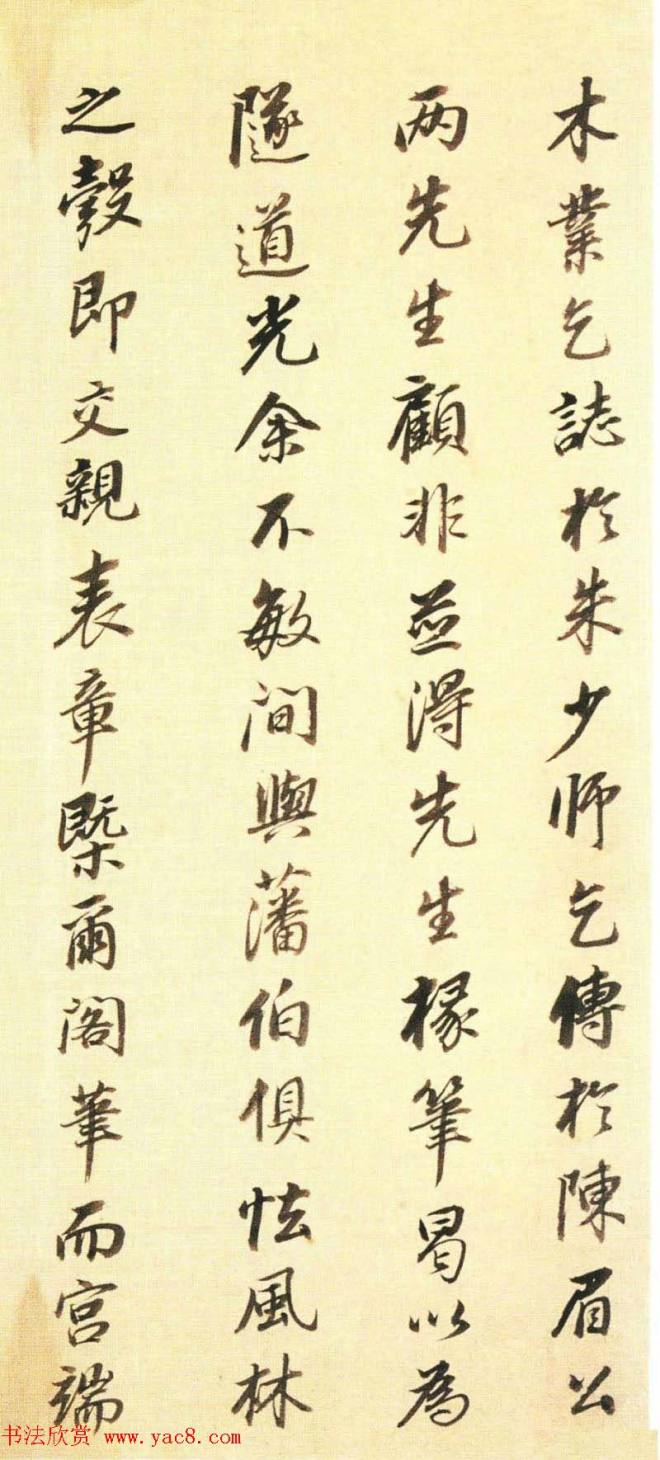 木業乞誌於朱少師乞傳於陳眉公
两先生顧非並得先生椽筆曷以為
隧道光余不敏間與藩伯俱怯風林
之발即交親表章槩爾閣筆而宫端
书法欣赏 www.yac8.com